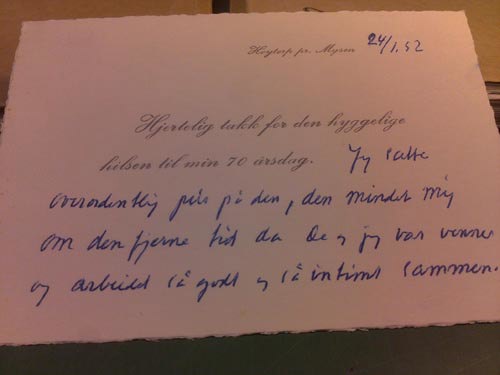 Høytorp pr. Mysen 24/1.52
Hjertelig takk for den hyggelige
hilsen til min 70 årsdag. Jeg satte
overordentlig pris på den, den mindet mig
om den fjerne tid da De og jeg var venner
og arbeidet så godt og så intimt sammen.